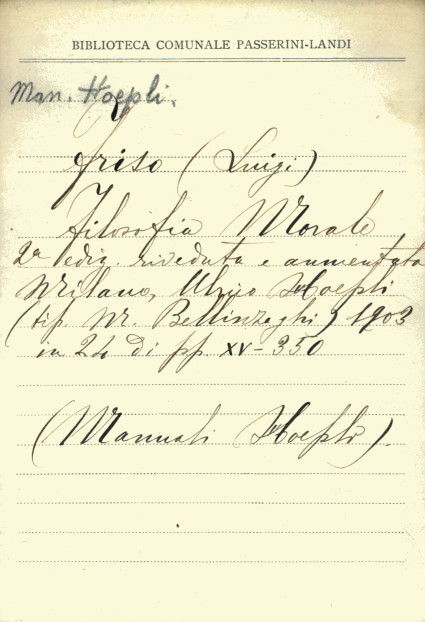 BIBLIOTECA COMUNALE PASSERINI-LANDI
Man. Hoepli.
Friso (Luigi)
Filosofia Morale
2a ediz. riveduta e aumentata
Milano, Ulrico Hoepli
(tip. M. Bellinzaghi) 1903
in 24 di pp. XV-350
(Manuali Hoepli).